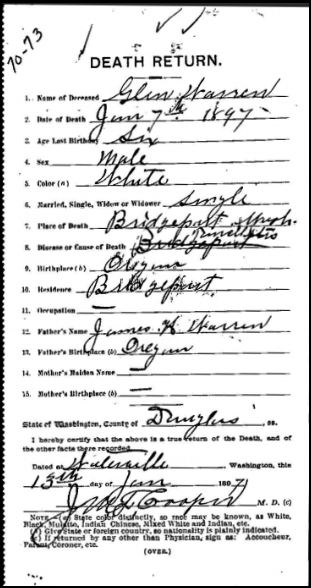 70-73
DEATH RETURN.
1. Name of Deceased Glen Warren
2. Date of Death Jan 7th 1897
3. Age Last Birthday Six
4. Sex Male
5. Color (a) White
6. Married, Single, Widow or Widower Single
7. Place of Death Bridgeport Wash.
8. Disease or Cause of Death Bridgeport
9. Birthplace (b) Oregon
10. Residence Bridgeport
11. Occupation —
12. Father's Name James K Warren
13. Father's Birthplace (b) Oregon
14. Mother's Maiden Name —
15. Mother's Birthplace (b) —
State of Washington, County of Douglas, ss.
I hereby certify that the above is a true return of the Death, and of
the other facts there recorded.
Dated at Waterville Washington, this
13th day of Jan 1897
J M Cooper M. D. (c)
NOTE.—(a) State color distinctly, so race may be known, as White,
Black, Mulatto, Indian Chinese, Mixed White and Indian, etc.
(b) Give State or foreign country, so nationality is plainly indicated.
(c) If returned by any other than Physician, sign as: Accoucheur,
Parent, Coroner, etc.
(OVER.)